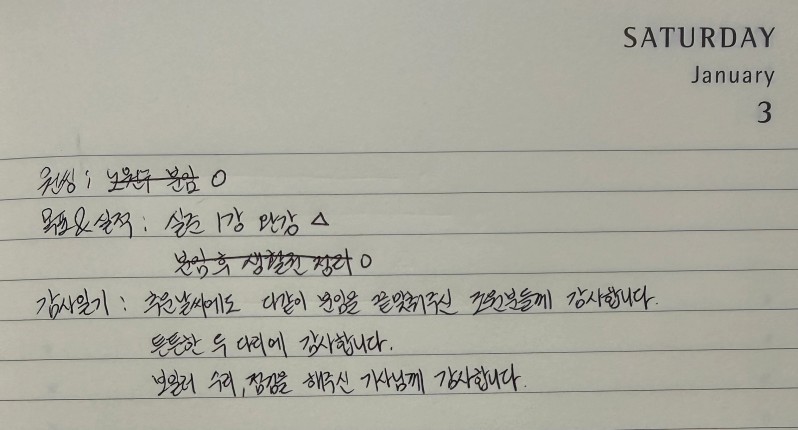 SATURDAY
January
3
원씽 : 노원구 분임 O
목표&실적 : 실전 1강 완강 △
분임 후 생활권 정리 O
감사일기 : 추운날씨에도 다같이 분임을 끝맞춰주신 조원분들께 감사합니다.
튼튼한 두 다리에 감사합니다.
보일러 수리, 점검을 해주신 기사님께 감사합니다.